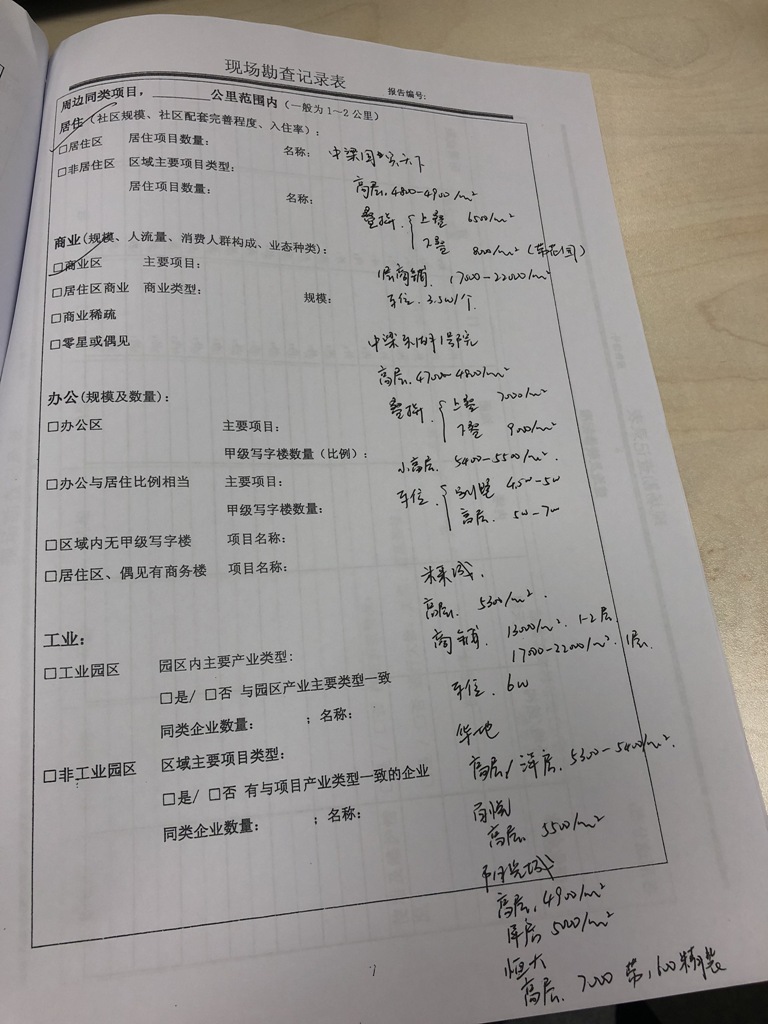 现场勘查记录表
报告编号:
周边同类项目，______公里范围内（一般为1～2公里）
居住（社区规模、社区配套完善程度、入住率）：
□居住区 居住项目数量: 名称:
□非居住区 区域主要项目类型:
居住项目数量: 名称:
商业(规模、人流量、消费人群构成、业态种类):
□商业区 主要项目:
□居住区商业 商业类型: 规模:
□商业稀疏
□零星或偶见
办公(规模及数量):
□办公区 主要项目:
甲级写字楼数量(比例):
□办公与居住比例相当 主要项目:
甲级写字楼数量:
□区域内无甲级写字楼 项目名称:
□居住区、偶见有商务楼 项目名称:
工业:
□工业园区 园区内主要产业类型:
□是/ □否 与园区产业主要类型一致
同类企业数量: ；名称:
□非工业园区 区域主要项目类型:
□是/ □否 有与项目产业类型一致的企业
同类企业数量: ；名称:
中梁国宾天下
高层. 4800-4900/m²
叠拼. 上叠 6500/m²
下叠 /m² (带花园)
1层商铺. 17000-22000/m²
车位. 3.5w/个
中梁 1号院
高层. 4700-4800/m²
叠拼. 上叠 7000/m²
下叠 9000/m²
小高层. 5400-5500/m².
车位. 别墅 4.5w-5w
高层. 5w-7w
未来城.
高层. 5300/m².
商铺. 13000/m². 1-2层.
17000-22000/m². 1层.
车位. 6w
华地
高层/洋房. 5300-5400/m².
百悦
高层. 5500/m²
阳光城
高层. 4900/m²
洋房 5000/m²
恒大
高层. 7000 带1600精装